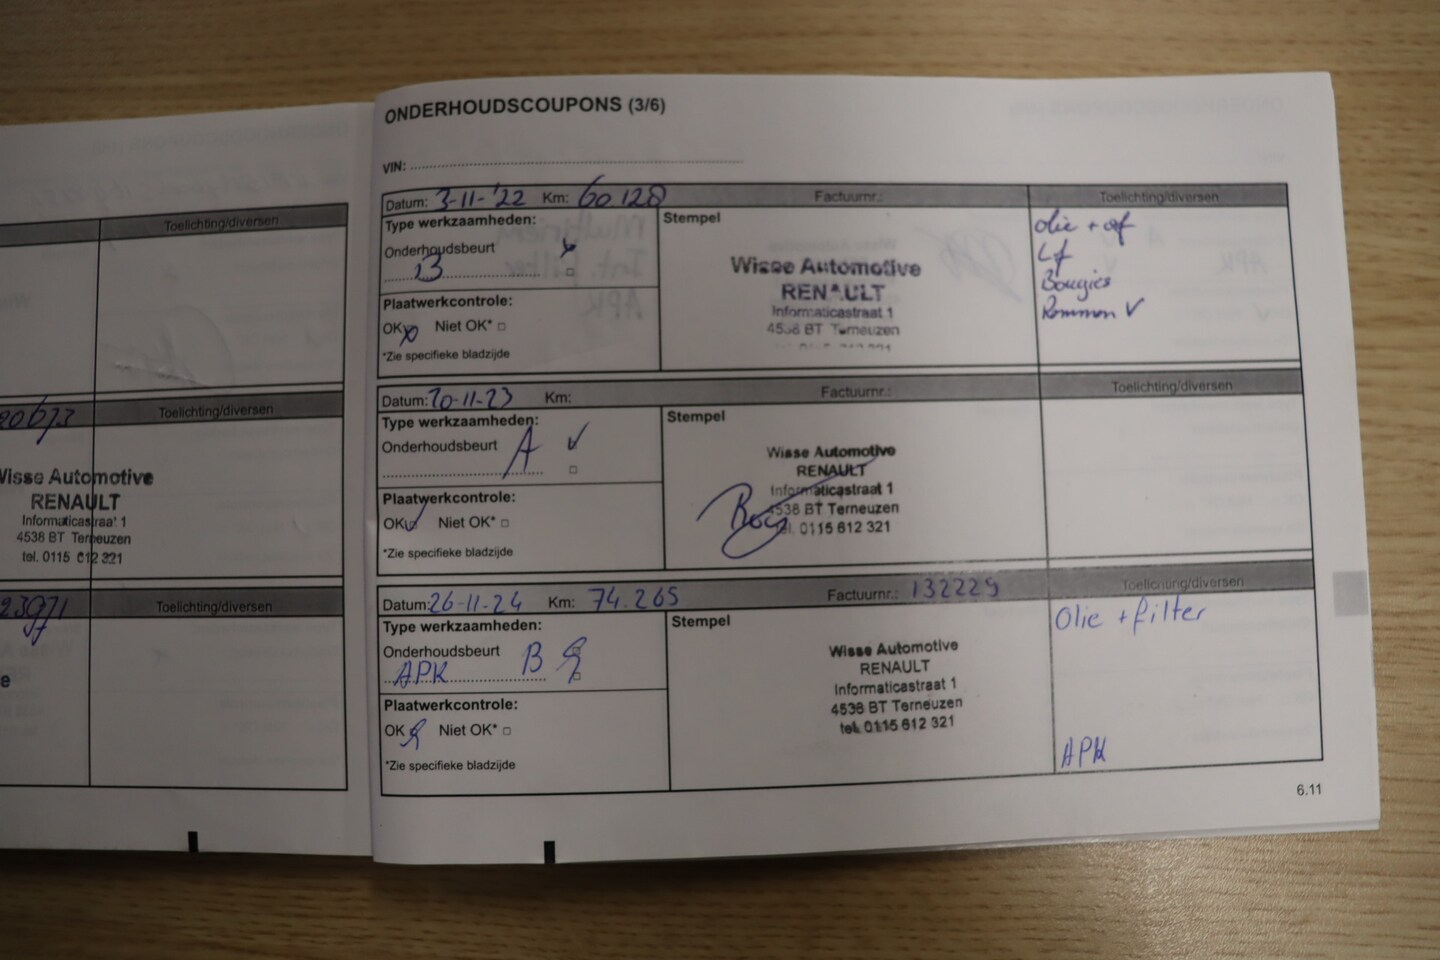 Toelichting/diversen
20673
Toelichting/diversen
Wisse Automotive
RENAULT
Informaticastraat 1
4538 BT Terneuzen
tel. 0115 612 321
23971
Toelichting/diversen
e
ONDERHOUDSCOUPONS (3/6)
VIN:
Datum: 3-11-'22 Km: 60128 Factuurnr.: Toelichting/diversen
Type werkzaamheden:
Onderhoudsbeurt
B
Plaatwerkcontrole:
OK Niet OK* □
*Zie specifieke bladzijde
Stempel
Wisse Automotive
RENAULT
Informaticastraat 1
4538 BT Terneuzen
olie + of
Lf
Bougies
Remmen ✓
Datum: 20-11-23 Km: Factuurnr.: Toelichting/diversen
Type werkzaamheden:
Onderhoudsbeurt A ✓
Plaatwerkcontrole:
OK ✓ Niet OK* □
*Zie specifieke bladzijde
Stempel
Wisse Automotive
RENAULT
Informaticastraat 1
4538 BT Terneuzen
tel. 0115 612 321
Datum: 26-11-24 Km: 74.265 Factuurnr.: 132229 Toelichting/diversen
Type werkzaamheden:
Onderhoudsbeurt B
APK
Plaatwerkcontrole:
OK Niet OK* □
*Zie specifieke bladzijde
Stempel
Wisse Automotive
RENAULT
Informaticastraat 1
4538 BT Terneuzen
tel. 0115 612 321
Olie + filter
APK
6.11